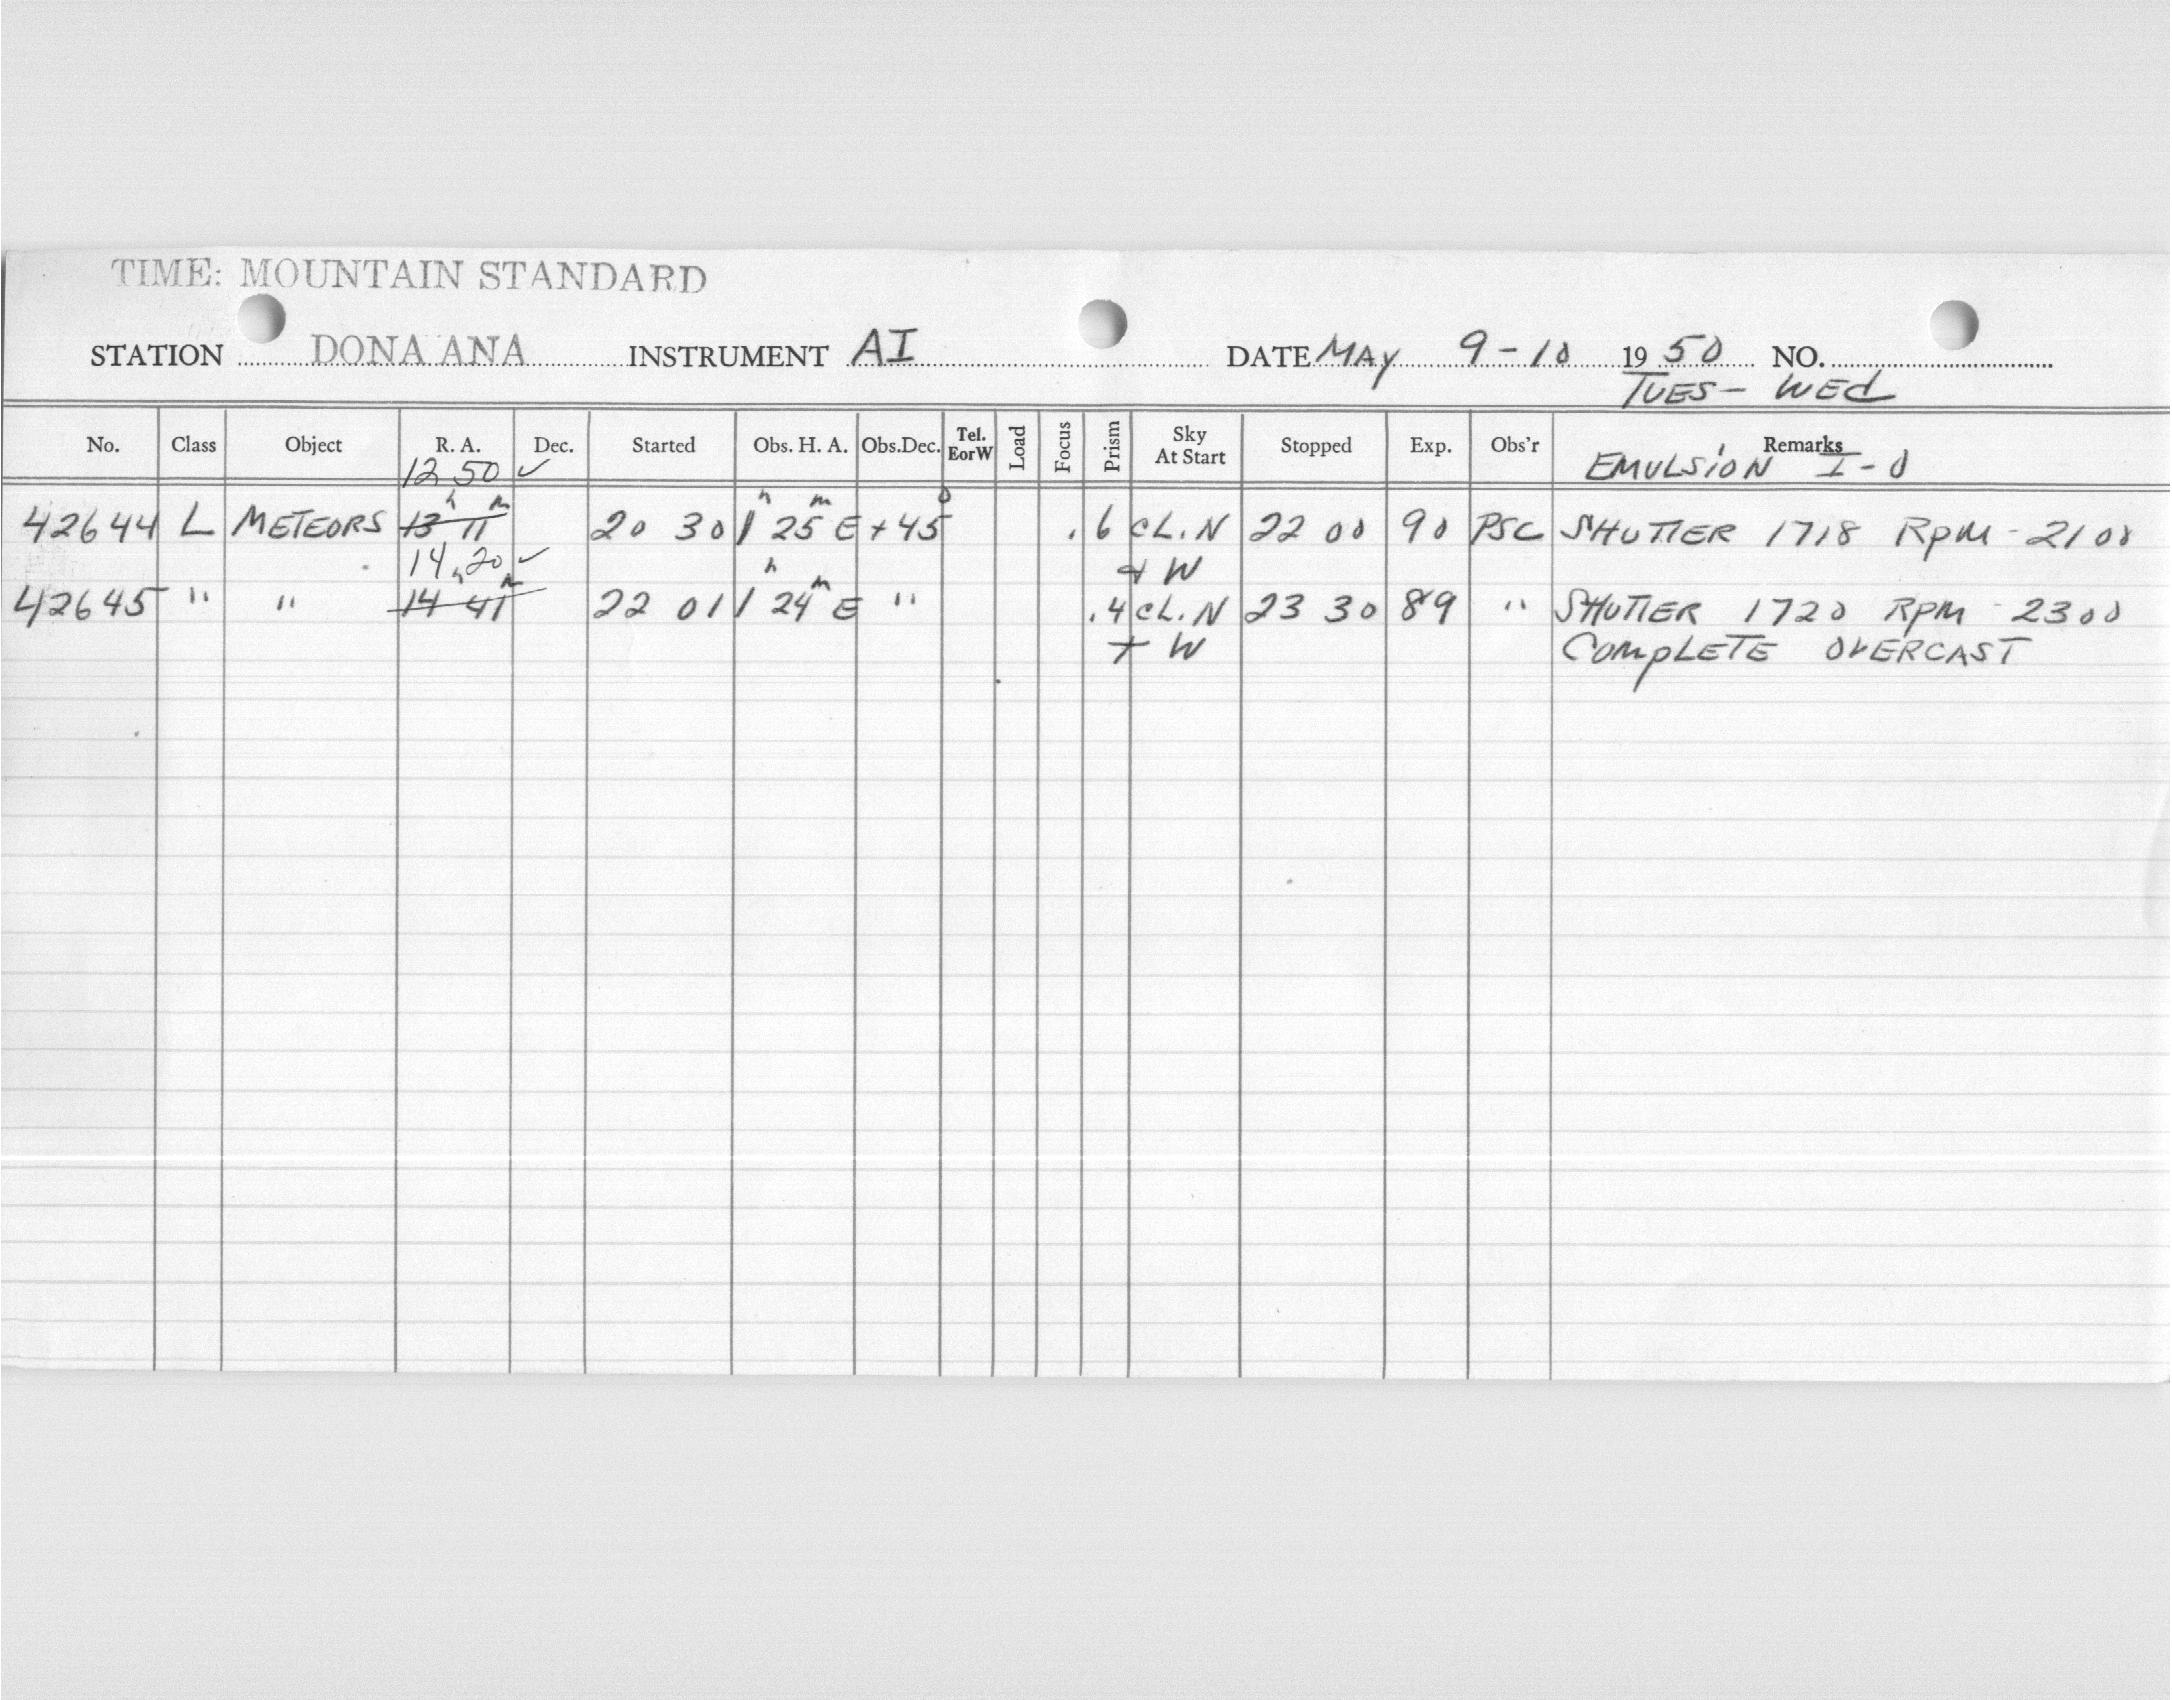 TIME: MOUNTAIN STANDARD
STATION DONA ANA INSTRUMENT AI DATE MAY 9-10 1950 NO.
TUES- WED
No. Class Object R. A. Dec. Started Obs. H. A. Obs.Dec. Tel. EorW Load Focus Prism Sky At Start Stopped Exp. Obs'r Remarks
12 50 ✓ EMULSION I-O
42644 L METEORS 13h 11m 20 30 1h 25m E +45° .6 CL.N 22 00 90 PSC SHUTTER 1718 RPM - 2100
14 20 ✓ + W
42645 " " 14h 41m 22 01 1h 24m E " .4 CL.N 23 30 89 " SHUTTER 1720 RPM - 2300
+ W COMPLETE OVERCAST